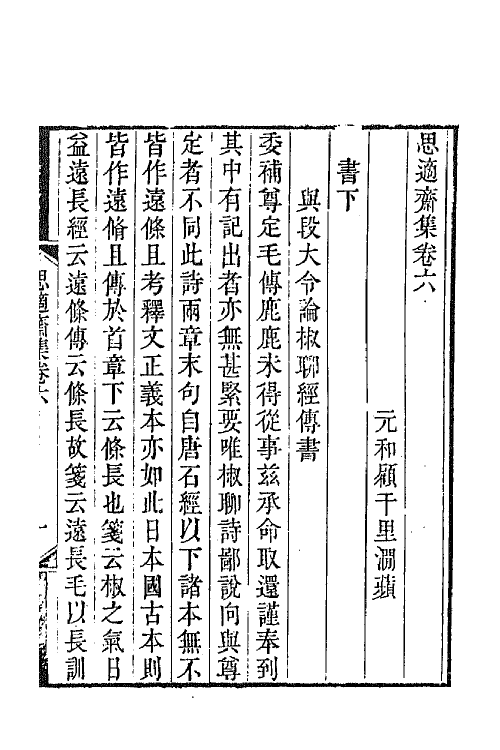 思適齋集卷六
元和顧千里澗蘋
書下
與段大令論椒聊經傳書
委補尊定毛傳鹿鹿未得從事兹承命取還謹奉到
其中有記出者亦無甚緊要唯椒聊詩鄙說向與尊
定者不同此詩兩章末句自唐石經以下諸本無不
皆作遠條且考釋文正義本亦如此日本國古本則
皆作遠脩且傳於首章下云條長也箋云椒之氣日
益遠長經云遠條傳云條長故箋云遠長毛以長訓
思適齋集卷六
一